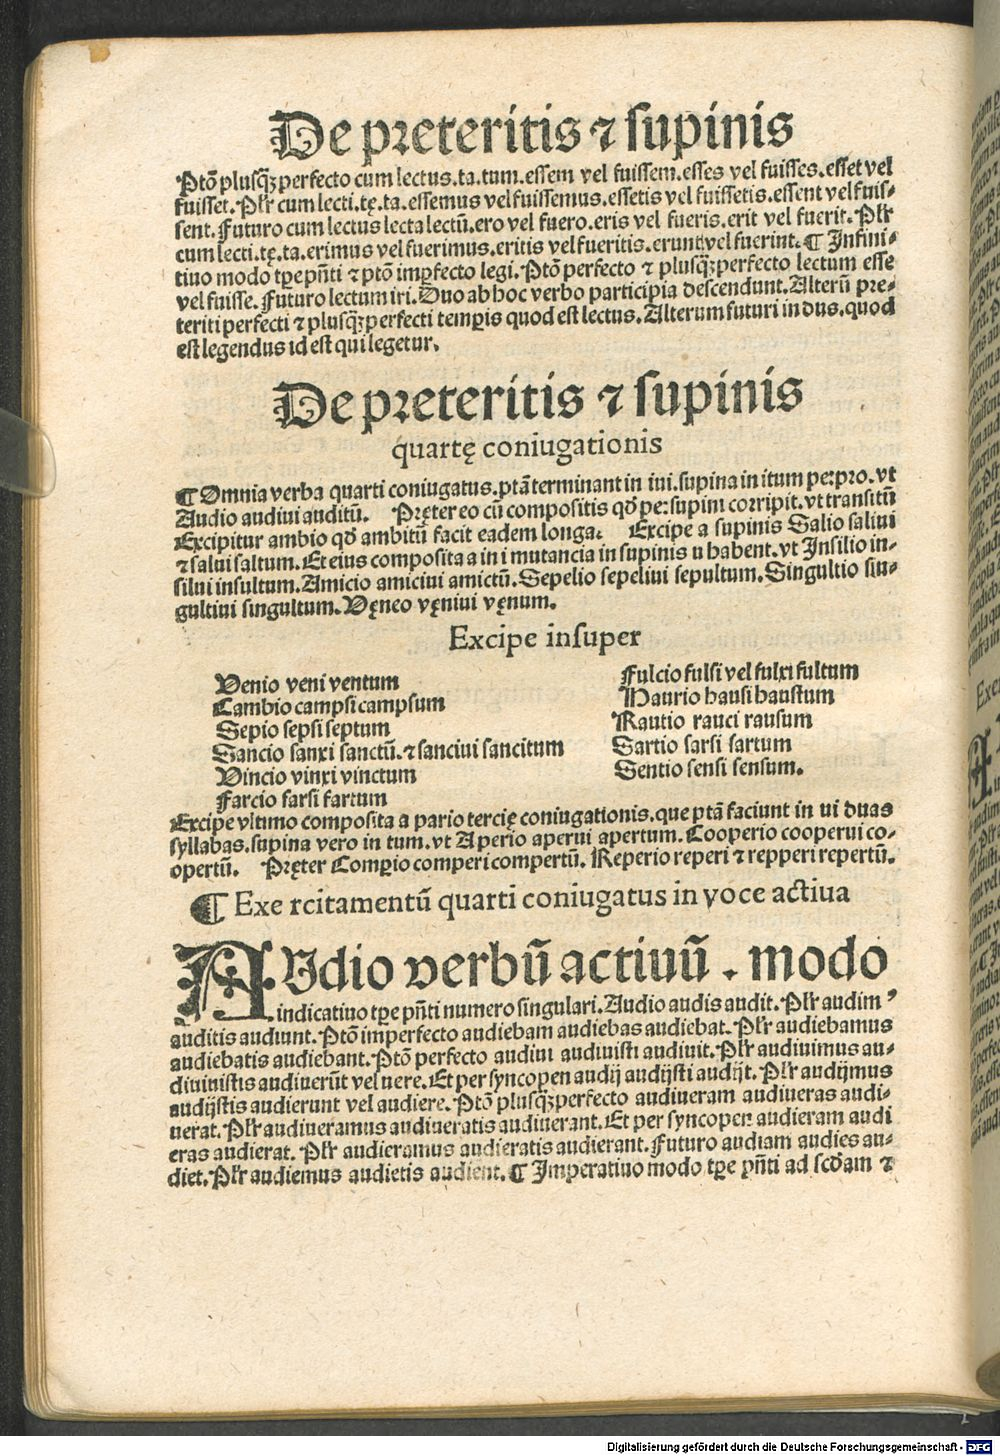 De preteritis ⁊ supinis
Ptō plusq̄ꝫperfecto cum lectus.ta.tum.essem vel fuissem.esses vel fuisses.esset vel
fuisset.Plr̄ cum lecti.tę.ta.essemus vel fuissemus.essetis vel fuissetis.essent vel fuis-
sent.Futuro cum lectus lecta lectū.ero vel fuero.eris vel fueris.erit vel fuerit.Plr̄
cum lecti.tę.ta.erimus vel fuerimus.eritis vel fueritis.erunt vel fuerint.¶ Infini-
tiuo modo tꝑe pn̄ti ⁊ ptō imꝑfecto legi.Ptō perfecto ⁊ plusq̄ꝫperfecto lectum esse
vel fuisse.Futuro lectum iri.Duo ab hoc verbo participia descendunt.Alterū pre-
teriti perfecti ⁊ plusq̄ꝫperfecti temꝑis quod est lectus.Alterum futuri in dus.quod
est legendus id est qui legetur.
De preteritis ⁊ supinis
quartę coniugationis
¶ Omnia verba quarti coniugatus.ptā terminant in iui.supina in itum per pro.vt
Audio audiui auditū. Pręter eo cū compositis qđ per supini corripit.vt transitū
Excipitur ambio qđ ambitū facit eadem longa. Excipe a supinis Salio saliui
⁊ salui saltum.Et eius composita a in i mutancia in supinis u habent.vt Insilio in-
silui insultum.Amicio amiciui amictū.Sepelio sepeliui sepultum.Singultio sin-
gultiui singultum.Vęneo vęniui vęnum.
Excipe insuper
Venio veni ventum
Cambio campsi campsum
Sepio sepsi septum
Sancio sanxi sanctū.⁊ sanciui sancitum
Vincio vinxi vinctum
Farcio farsi fartum
Fulcio fulsi vel fulxi fultum
Haurio hausi haustum
Rautio rauci rausum
Sartio sarsi sartum
Sentio sensi sensum.
Excipe vltimo composita a pario tercię coniugationis.que ptā faciunt in ui duas
syllabas.supina vero in tum.vt Aperio aperui apertum.Cooperio cooperui co-
opertū. Pręter Comꝑio comperi compertū.Reperio reperi ⁊ repperi repertū.
¶ Exe rcitamentū quarti coniugatus in voce actiua
AVdio verbū actiuū . modo
indicatiuo tꝑe pn̄ti numero singulari.Audio audis audit.Plr̄ audim⁹
auditis audiunt.Ptō imperfecto audiebam audiebas audiebat.Plr̄ audiebamus
audiebatis audiebant.Ptō perfecto audiui audiuisti audiuit.Plr̄ audiuimus au-
diuiuistis audiuerūt vel uere.Et per syncopen audij audijsti audijt.Plr̄ audijmus
audijstis audierunt vel audiere.Ptō plusq̄ꝫperfecto audiueram audiueras audi-
uerat.Plr̄ audiueramus audiueratis audiuerant.Et per syncopen audieram audi
eras audierat.Plr̄ audieramus audieratis audierant.Futuro audiam audies au-
diet.Plr̄ audiemus audietis audient.¶ Imperatiuo modo tꝑe pn̄ti ad scđam ⁊
Digitalisierung gefördert durch die Deutsche Forschungsgemeinschaft - DFG